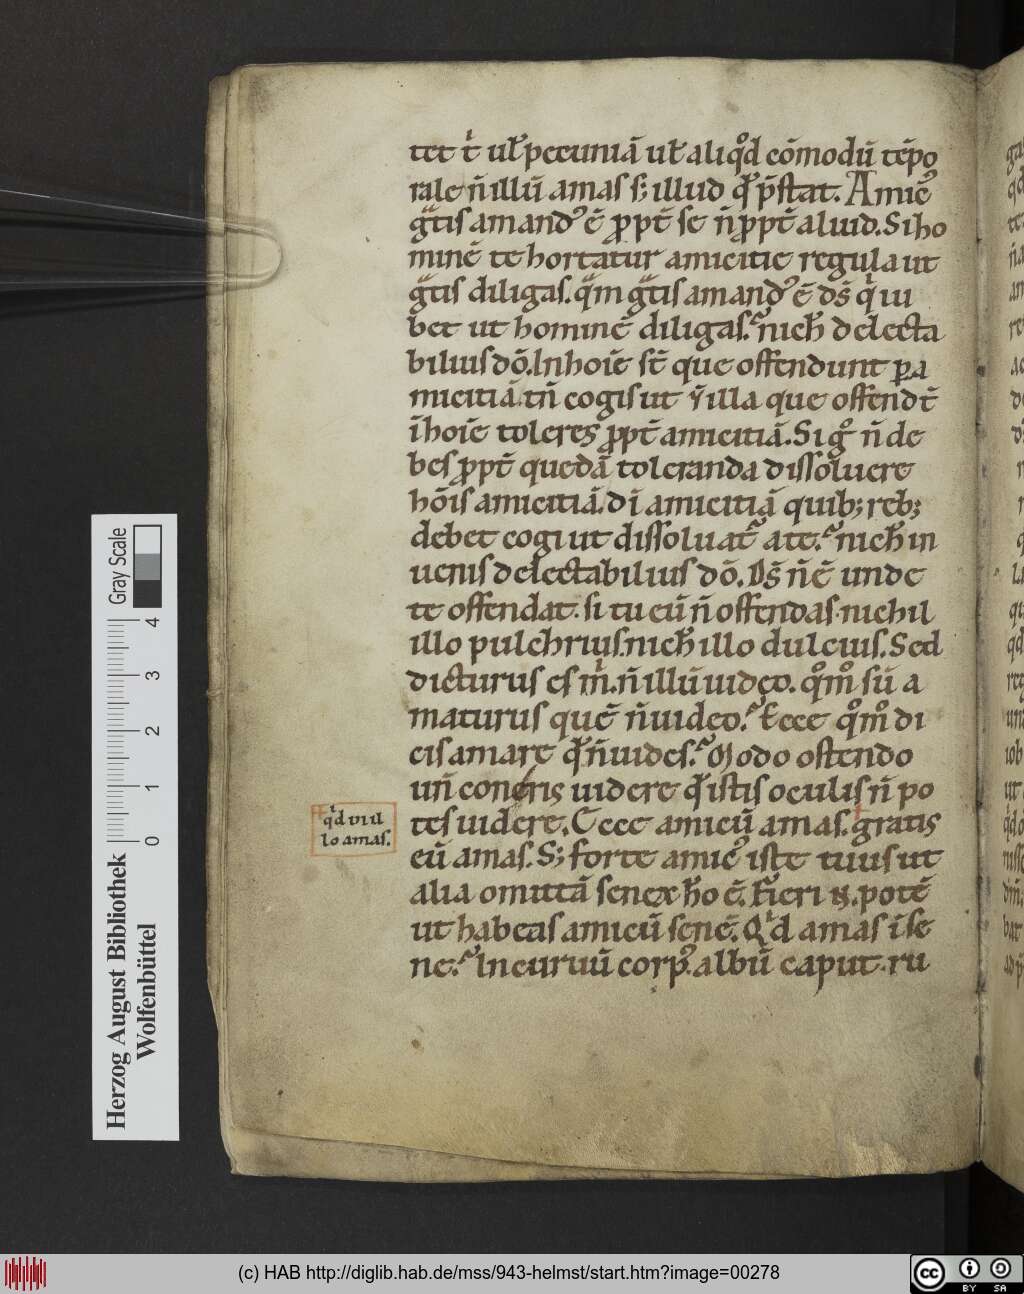 tet t̄ ul̄ pecuniā ul̄ aliqͦd cōmodū tēpo
rale n̄ illū amas s; illud qͥ p̄stat. Amicꝰ
gͣtis amandꝰ ē ꝓpt̄ se n̄ ꝓpt̄ aliud. Si ho
minē te hortatur amicitie regula ut
gͣtis diligas. qͣm gͣtis amandꝰ ē ds̄ qͥ iu
bet ut hominē diligas. nich̄ delecta
bilius dō. In hoīe st̄ que offendunt ꝑ a
micitiā. tn̄ cogis ut illa que offendt̄
ī hoīe toleres ꝓpt̄ amicitiā. Si gͦ n̄ de
bes ꝓpt̄ quedā toleranda dissoluere
hōis amicitiā. dī amicitiā quib; reb;
debet cogi ut dissoluat̄ a te. nich̄ in
uenis delectabilius dō. Ds̄ n̄ ē unde
te offendat. si tu eū n̄ offendas. nichil
illo pulchrius. nich̄ illo dulcius. Sed
dicturus es mͥ. n̄ illū uideo. qͦmͦ sū a
maturus quē n̄ uideo. Ecce qͦmͦ di
cis amare qͥ n̄ uides. Modo ostendo
un̄ coneris uidere qͥ istis oculis n̄ po
tes uidere. Ecce amicū amas. gratis
qͥd in il
lo amas.
eū amas. S; forte amicꝰ iste tuus ut
alia omittā senex hͦ ē. Fieri n̄. potē
ut habeas amicū senē. Qͥd amas ī se
ne. In curuū corpꝰ. albū caput. ru
Herzog August Bibliothek
Wolfenbüttel
0 1 2 3 4
Gray Scale
(c) HAB http://diglib.hab.de/mss/943-helmst/start.htm?image=00278
cc BY SA